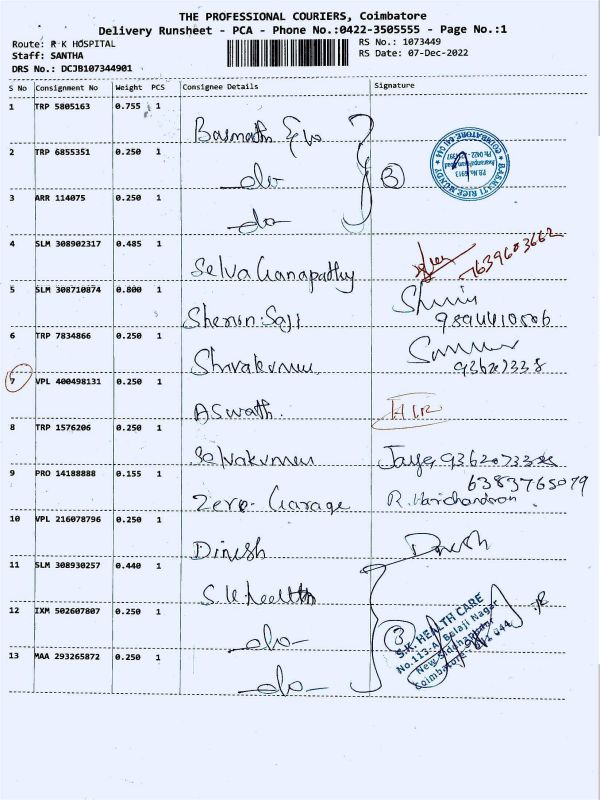 THE PROFESSIONAL COURIERS, Coimbatore
Delivery Runsheet - PCA - Phone No.:0422-3505555 - Page No.:1
Route: R K HOSPITAL
Staff: SANTHA
DRS No.: DCJB107344901
RS No.: 1073449
RS Date: 07-Dec-2022
S No Consignment No Weight PCS Consignee Details Signature
1 TRP 5805163 0.755 1
2 TRP 6855351 0.250 1 -do-
3 ARR 114075 0.250 1 -do-
(3)
BASMATI RICE MUNDY
COIMBATORE 641 044
4 SLM 308902317 0.485 1 Selva Ganapathy 7639603662
5 SLM 308710874 0.800 1 Sherin Saji
6 TRP 7834866 0.250 1 Shivakumar
7 VPL 400498131 0.250 1 Aswath.
8 TRP 1576206 0.250 1 Selvakumar Jaya
9 PRO 14188888 0.155 1 Zero-Garage R. Harichandran
10 VPL 216078796 0.250 1 Dinesh Dinesh
11 SLM 308930257 0.440 1 S.K Health
12 IXM 502607807 0.250 1 -do-
13 MAA 293265872 0.250 1 -do-
(3)
S.K. HEALTH CARE
No.113-A, Balaji Nagar
New Siddhapudur
Coimbatore - 641 044.